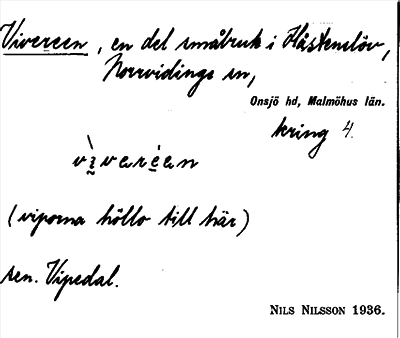 Vivereen, en del småbruk i Hästenslöv,
Norrvidinge sn,
Onsjö hd, Malmöhus län.
kring 4.
vìvareen
(viporna höllo till här)
sen. Vipedal.
NILS NILSSON 1936.